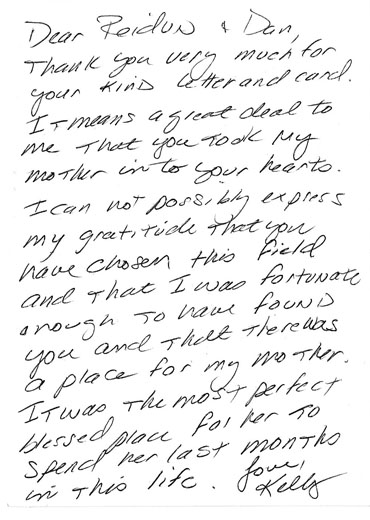 Dear Reidun & Dan,
Thank you very much for
your kind letter and card.
It means a great deal to
me that you took my
mother in to your hearts.
I can not possibly express
my gratitude that you
have chosen this field
and that I was fortunate
enough to have found
you and that there was
a place for my mother.
It was the most perfect
blessed place for her to
spend her last months
in this life. Love,
Kelly